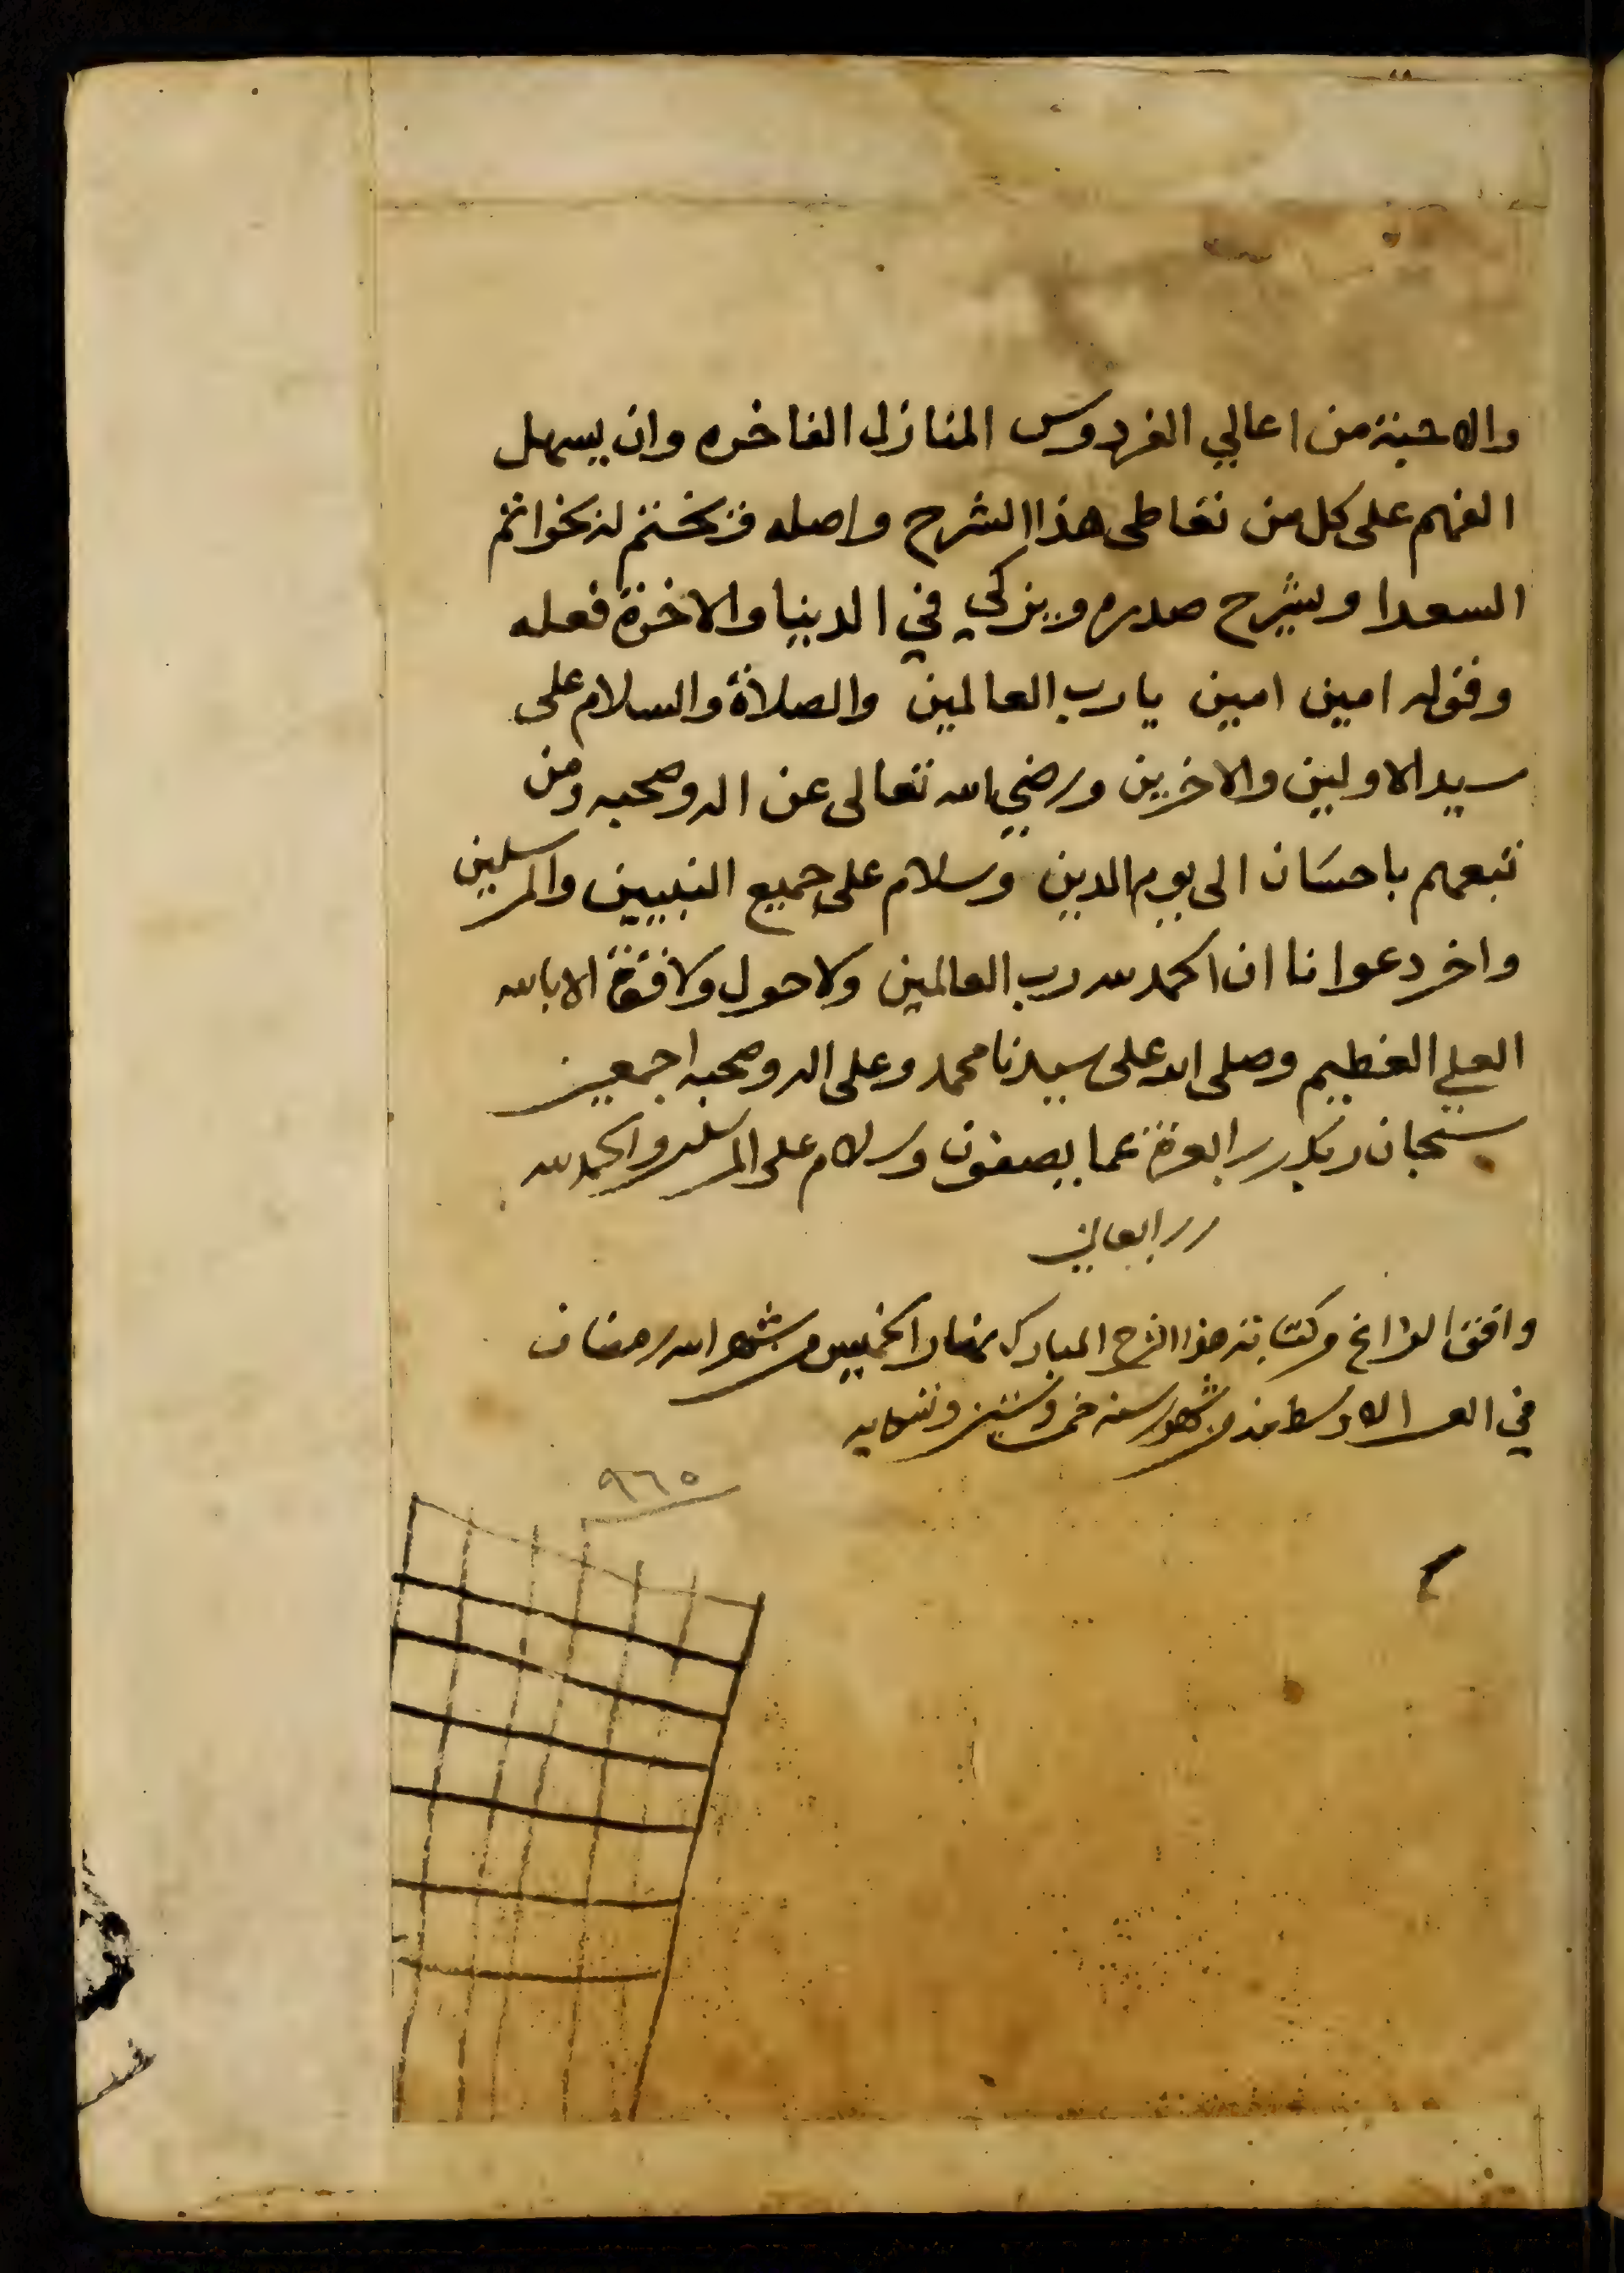 والاحبة من اعالي الفردوس المنازل الفاخره وان يسهل
الفهم على كل من تعاطى هذا الشرح واصله ويختم له بخواتم
السعدا ويشرح صدره ويزكي في الدنيا والاخرة فعله
وقوله امين امين يا رب العالمين والصلاة والسلام على
سيد الاولين والاخرين ورضي الله تعالى عن اله وصحبه ومن
تبعهم باحسان الى يوم الدين وسلام على جميع النبيين والمرسلين
واخر دعوانا ان الحمد لله رب العالمين ولا حول ولا قوة الا بالله
العلي العظيم وصلى الله على سيدنا محمد وعلى اله وصحبه اجمعين
سبحان ربك رب العزة عما يصفون وسلام على المرسلين والحمد لله
رب العالمين
وافق الفراغ من كتابة هذا الشرح المبارك نهار الخميس من شهر الله رمضان
في العشر الاوسط منه من شهور سنه خمس وستين وتسعمايه
٩٦٥